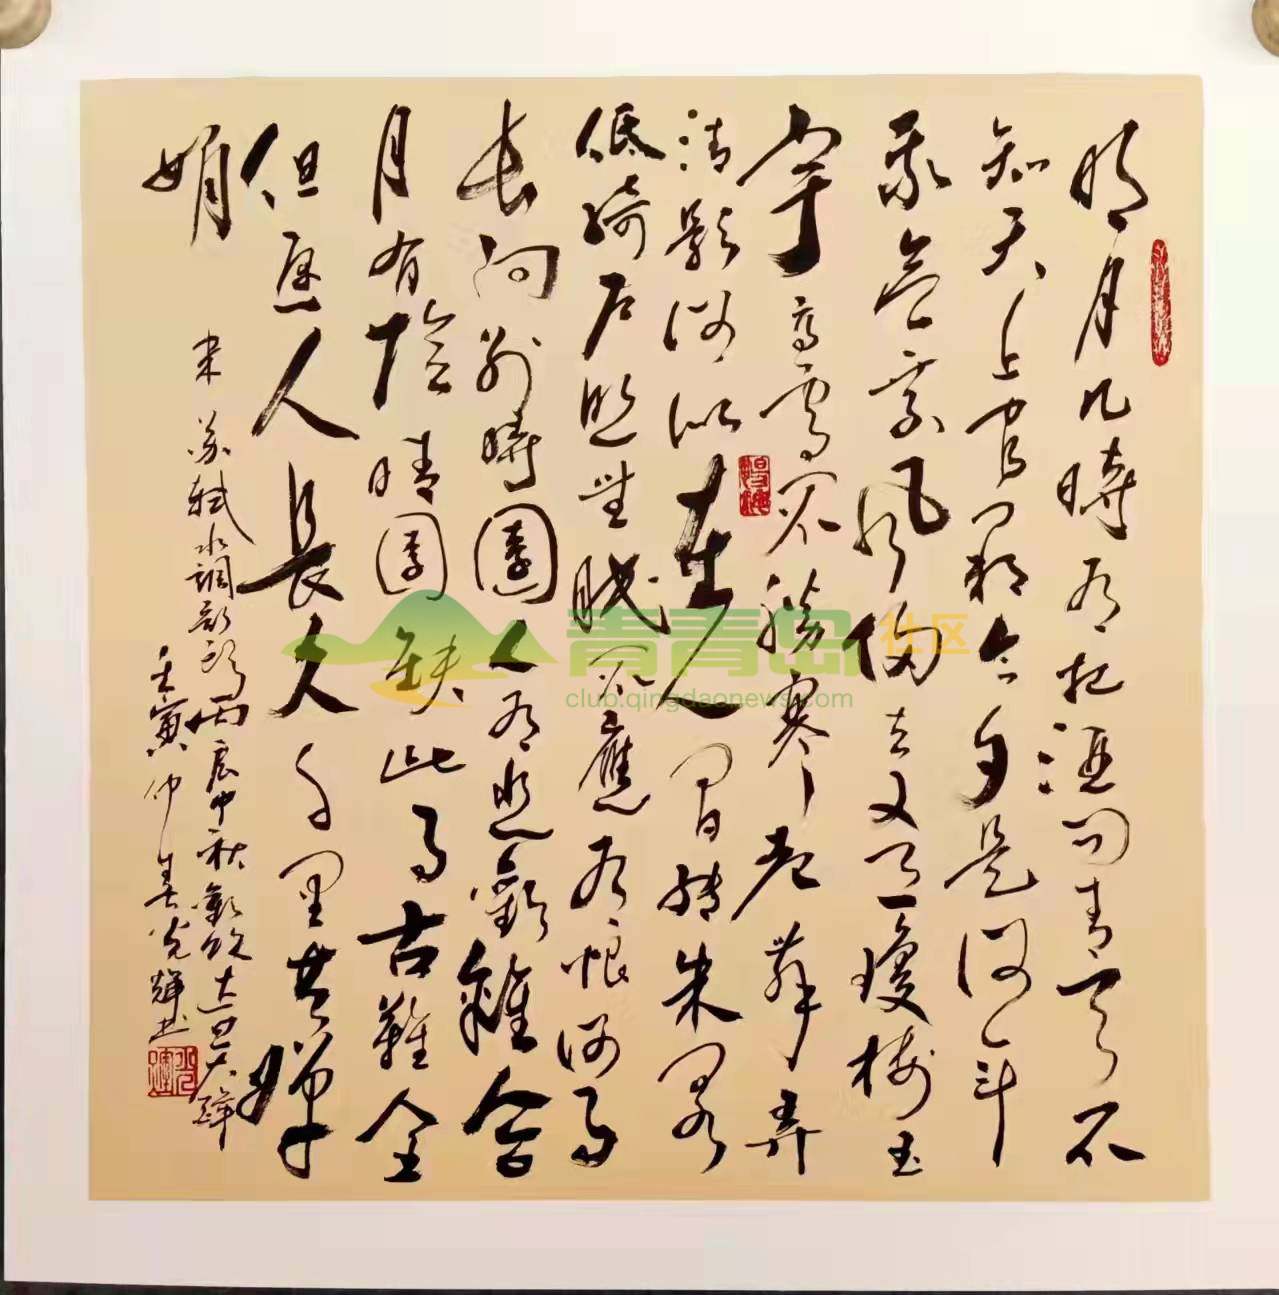 明月几時有把酒問青天不
知天上宮闕今夕是何年
我欲乘風歸去又恐瓊樓玉
宇高處不勝寒起舞弄
清影何似在人間轉朱閣
低綺戶照無眠不應有恨何事
长向別時圓人有悲歡離合
月有陰晴圓缺此事古難全
但愿人長久千里共嬋
娟
宋蘇軾水調歌頭丙辰中秋歡飲達旦大醉
壬寅仲春光輝書
青青岛社区
club.qingdaonews.com